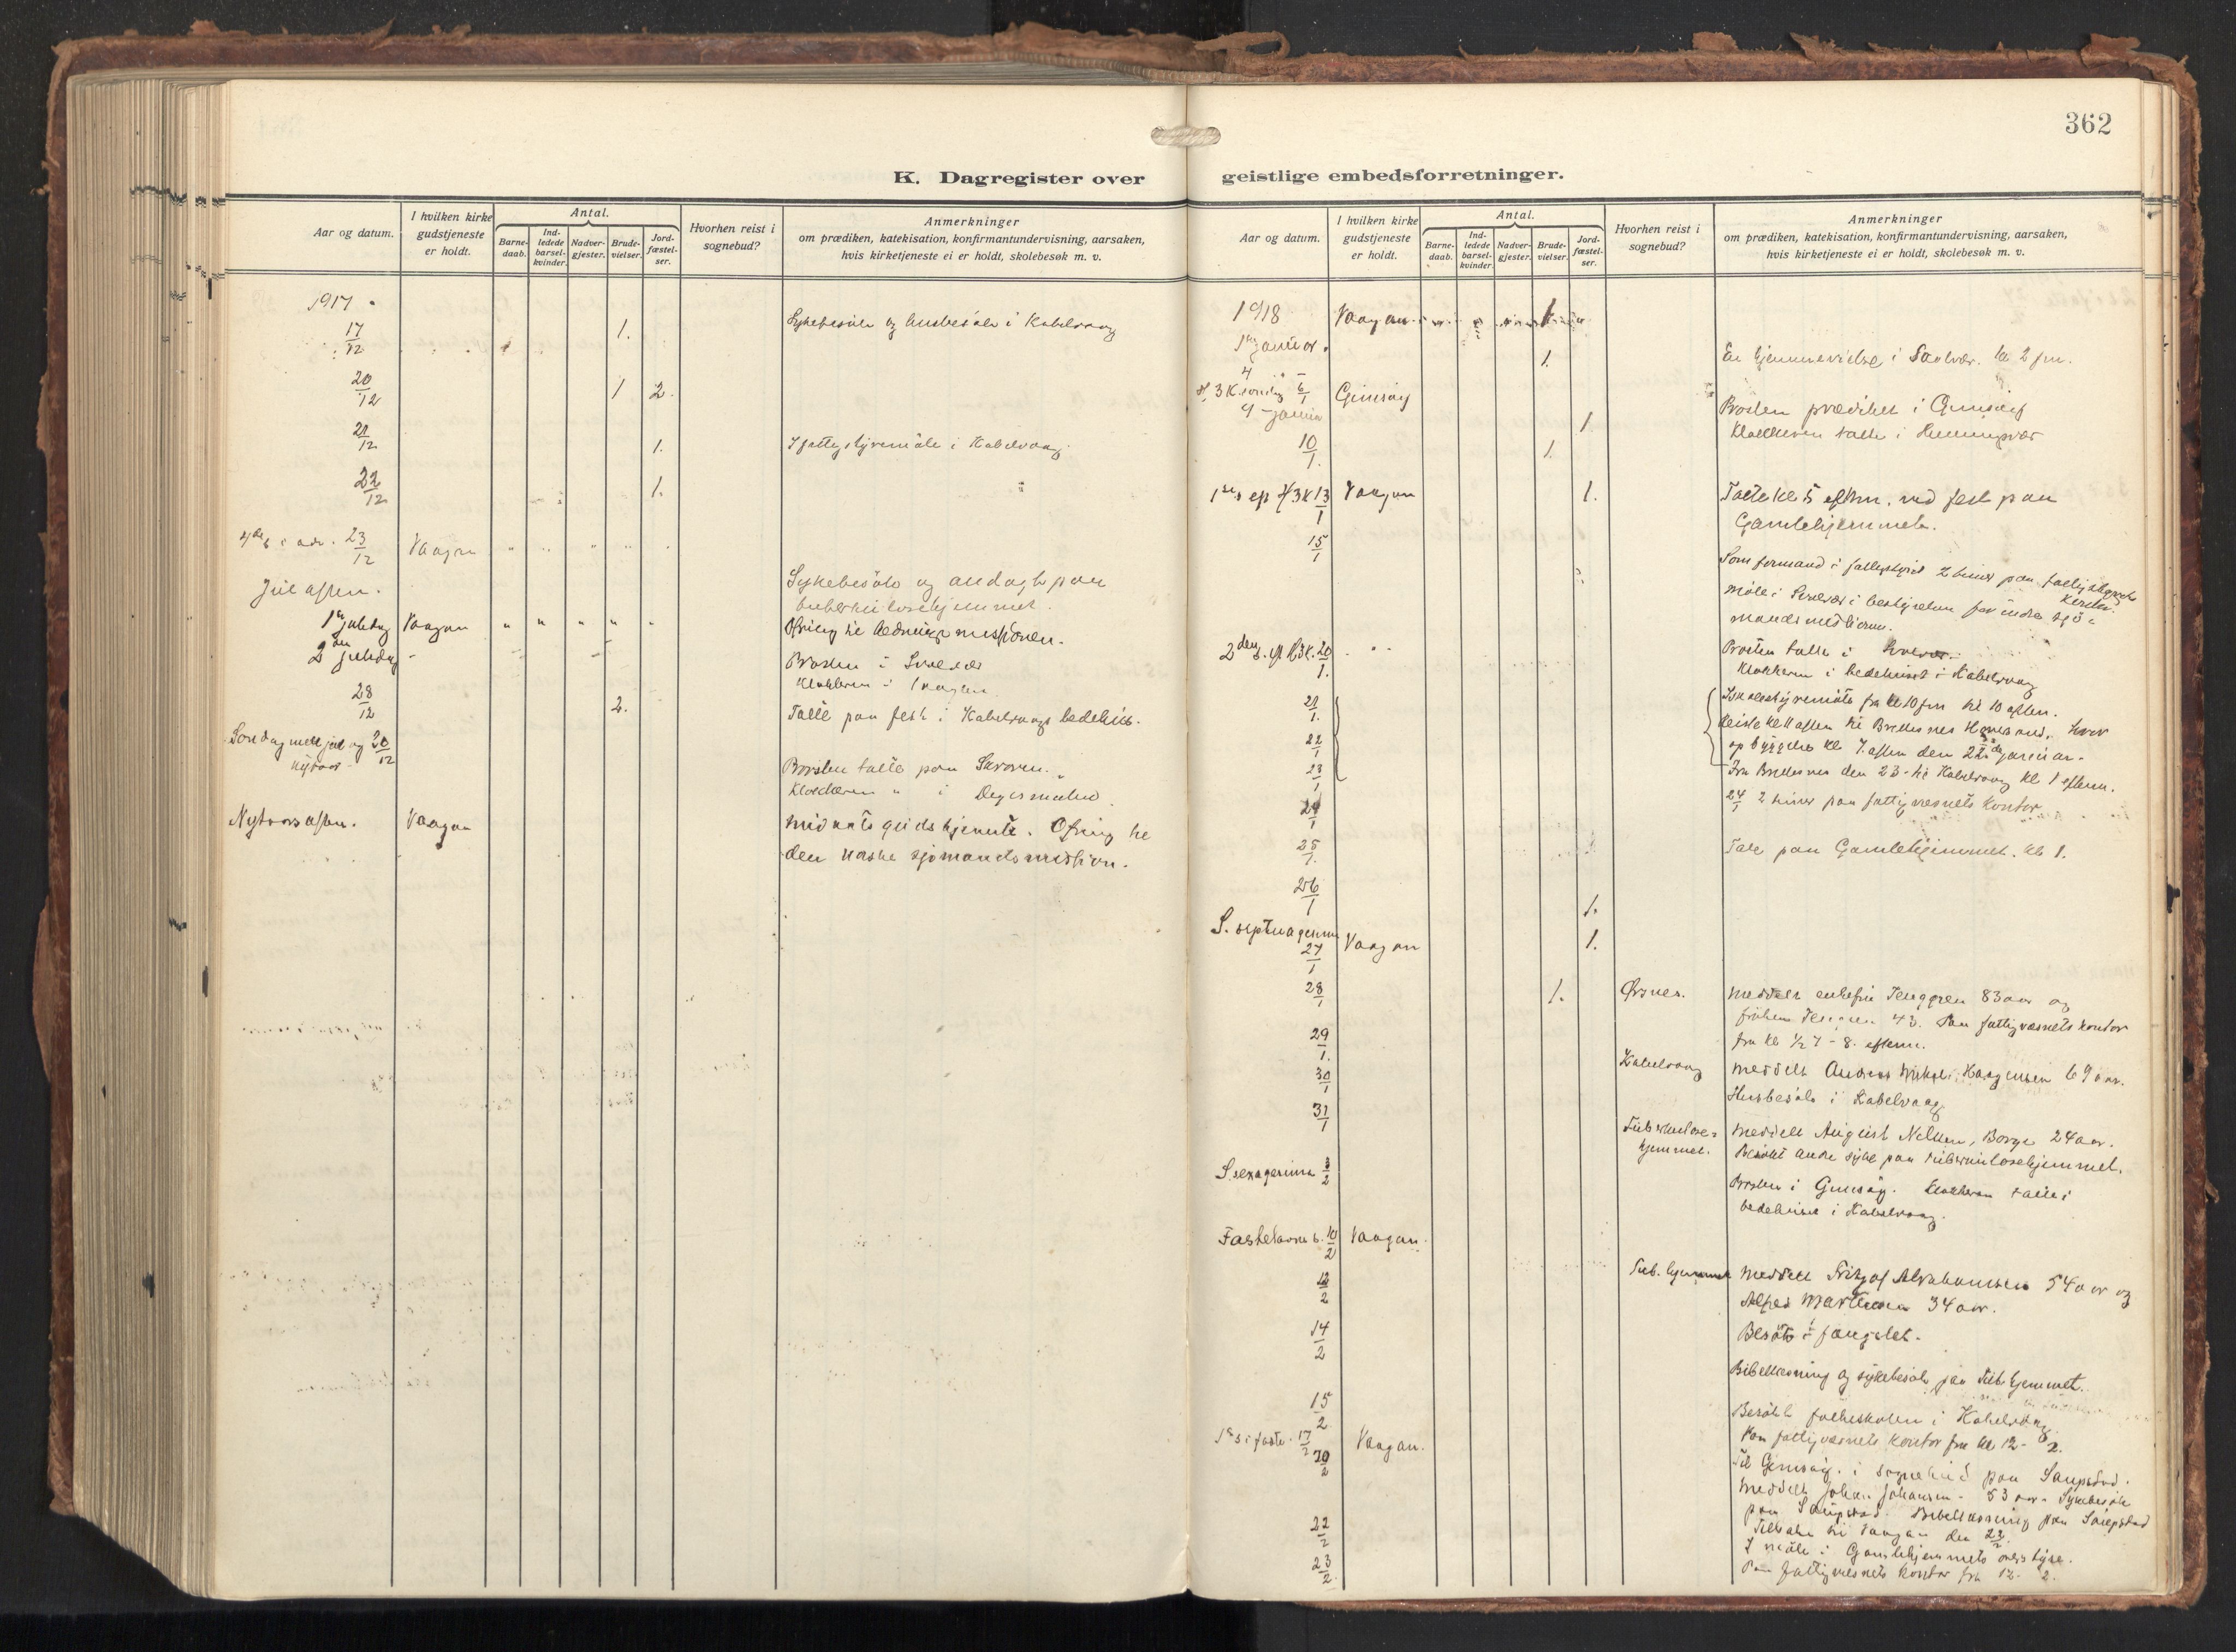 362
K. Dagregister over
Aar og datum.
I hvilken kirke
gudstjeneste
er holdt.
Antal.
Barne-
daab.
Ind-
ledede
barsel-
kvinder.
Nadver-
gjester.
Brude-
vielser.
Jord-
fæstel-
ser.
Hvorhen reist i
sognebud?
Anmerkninger
om prædiken, katekisation, konfirmantundervisning, aarsaken,
hvis kirketjeneste ei er holdt, skolebesøk m. v.
1917
17/12 1. Sykebesök og husbesök i Kabelvaag
20/12 1 2.
21/12 1. I fattigstyremöte i Kabelvaag
22/12 1.
4de s. i adv. 23/12 Vaagan " " " " "
Juleaften. Sykebesök og andagt paa
tuberkulosehjemmet.
1ste juledag Vaagan " " " " " Ofring til hedningemissionen.
2den juledag - Prosten i Svolvær
Klokkeren i Vaagan
28/12 2. Talte paa fest i Kabelvaags bedehus.
Søndag mell jul og 30/12
nytaar Prosten talte paa Skroven.
Klokkeren " i Digermulen.
Nytaarsaften. Vaagan Midnatsgudstjeneste. Ofring til
den norske sjømandsmission.
geistlige embedsforretninger.
Aar og datum.
I hvilken kirke
gudstjeneste
er holdt.
Antal.
Barne-
daab.
Ind-
ledede
barsel-
kvinder.
Nadver-
gjester.
Brude-
vielser.
Jord-
fæstel-
ser.
Hvorhen reist i
sognebud?
Anmerkninger
om prædiken, katekisation, konfirmantundervisning, aarsaken,
hvis kirketjeneste ei er holdt, skolebesøk m. v.
1918 Vaagan
1ste januar.
4 - 1. En hjemmevielse i Svolvær. kl 2 fm.
H. 3 K. søndag 6/1 Gimsöy Prosten prædiket i Gimsöy
9 - januar 1. Klokkeren talte i Henningsvær
10/1. 1.
1ste s. ep H3K 13/1 Vaagan 1. Talte kl 5 eftm. ved fest paa
Gamlehjemmet.
15/1 Som formand i fattigstyret 2 timer paa fattigstyrets
kontor.
Möte i Svolvær i bestyrelsen for indre sjö-
mandsmission.
2den s. ep H3K. 20/1. " Prosten talte i Svolvær.
Klokkeren i bedehuset i Kabelvaag
21/1. Skolestyremöte fra kl 10 fm til 10 aften.
22/1 Reiste kl 11 aften til Brettesnes hvor
opbyggelse kl 7 aften den 22de januar.
23/1 Fra Brettesnes den 23- til Kabelvaag kl 1 eftm.
24/1 24/1 2 timer paa fattigvæsnets kontor
25/1. Tale paa Gamlehjemmet. kl 1.
26/1 1.
S. septuagesima 27/1 Vaagan 1.
28/1 1. Ørsnes. Meddelt enkefru Tenggren 83 aar og
fröken Tenggren 43. Paa fattigvæsnets kontor
29/1. fra kl ½7 - 8. eftm.
30/1 Kabelvaag Meddelt Anders Haagensen 69 aar.
31/1 Husbesök i Kabelvaag
Tuberkulose-
hjemmet. Meddelt August Nilsen, Borge 24 aar.
Besökt andre syke paa tuberkulosehjemmet.
S. sexagesima 3/2 Prosten i Gimsöy. Klokkeren talte i
bedehuset i Kabelvaag.
Fastelavns s. 10/2 Vaagan.
12/2 Tub. hjemmet Meddelt Fritjof Abrahamsen 54 aar og
Alfred Martinsen 34 aar.
14/2 Besök i fængslet.
Bibellæsning og sykebesök paa Tub hjemmet.
15/2 Besökt folkeskolen i Kabelvaag.
1ste s. i faste 17/2 Vaagan. Paa fattigvæsnets kontor fra kl 12 - 2.
20/2 Til Gimsöy. i sognebud paa Saupstad.
Meddelt Johan Johansen - 83 aar. Sykebesök
paa Saupstad. Bibellæsning paa Saupstad
22/2 Tilbake til Vaagan den 22/2.
I möte i Gamlehjemmets overstyre.
23/2. Paa fattigvæsnets kontor fra 12 - 2.